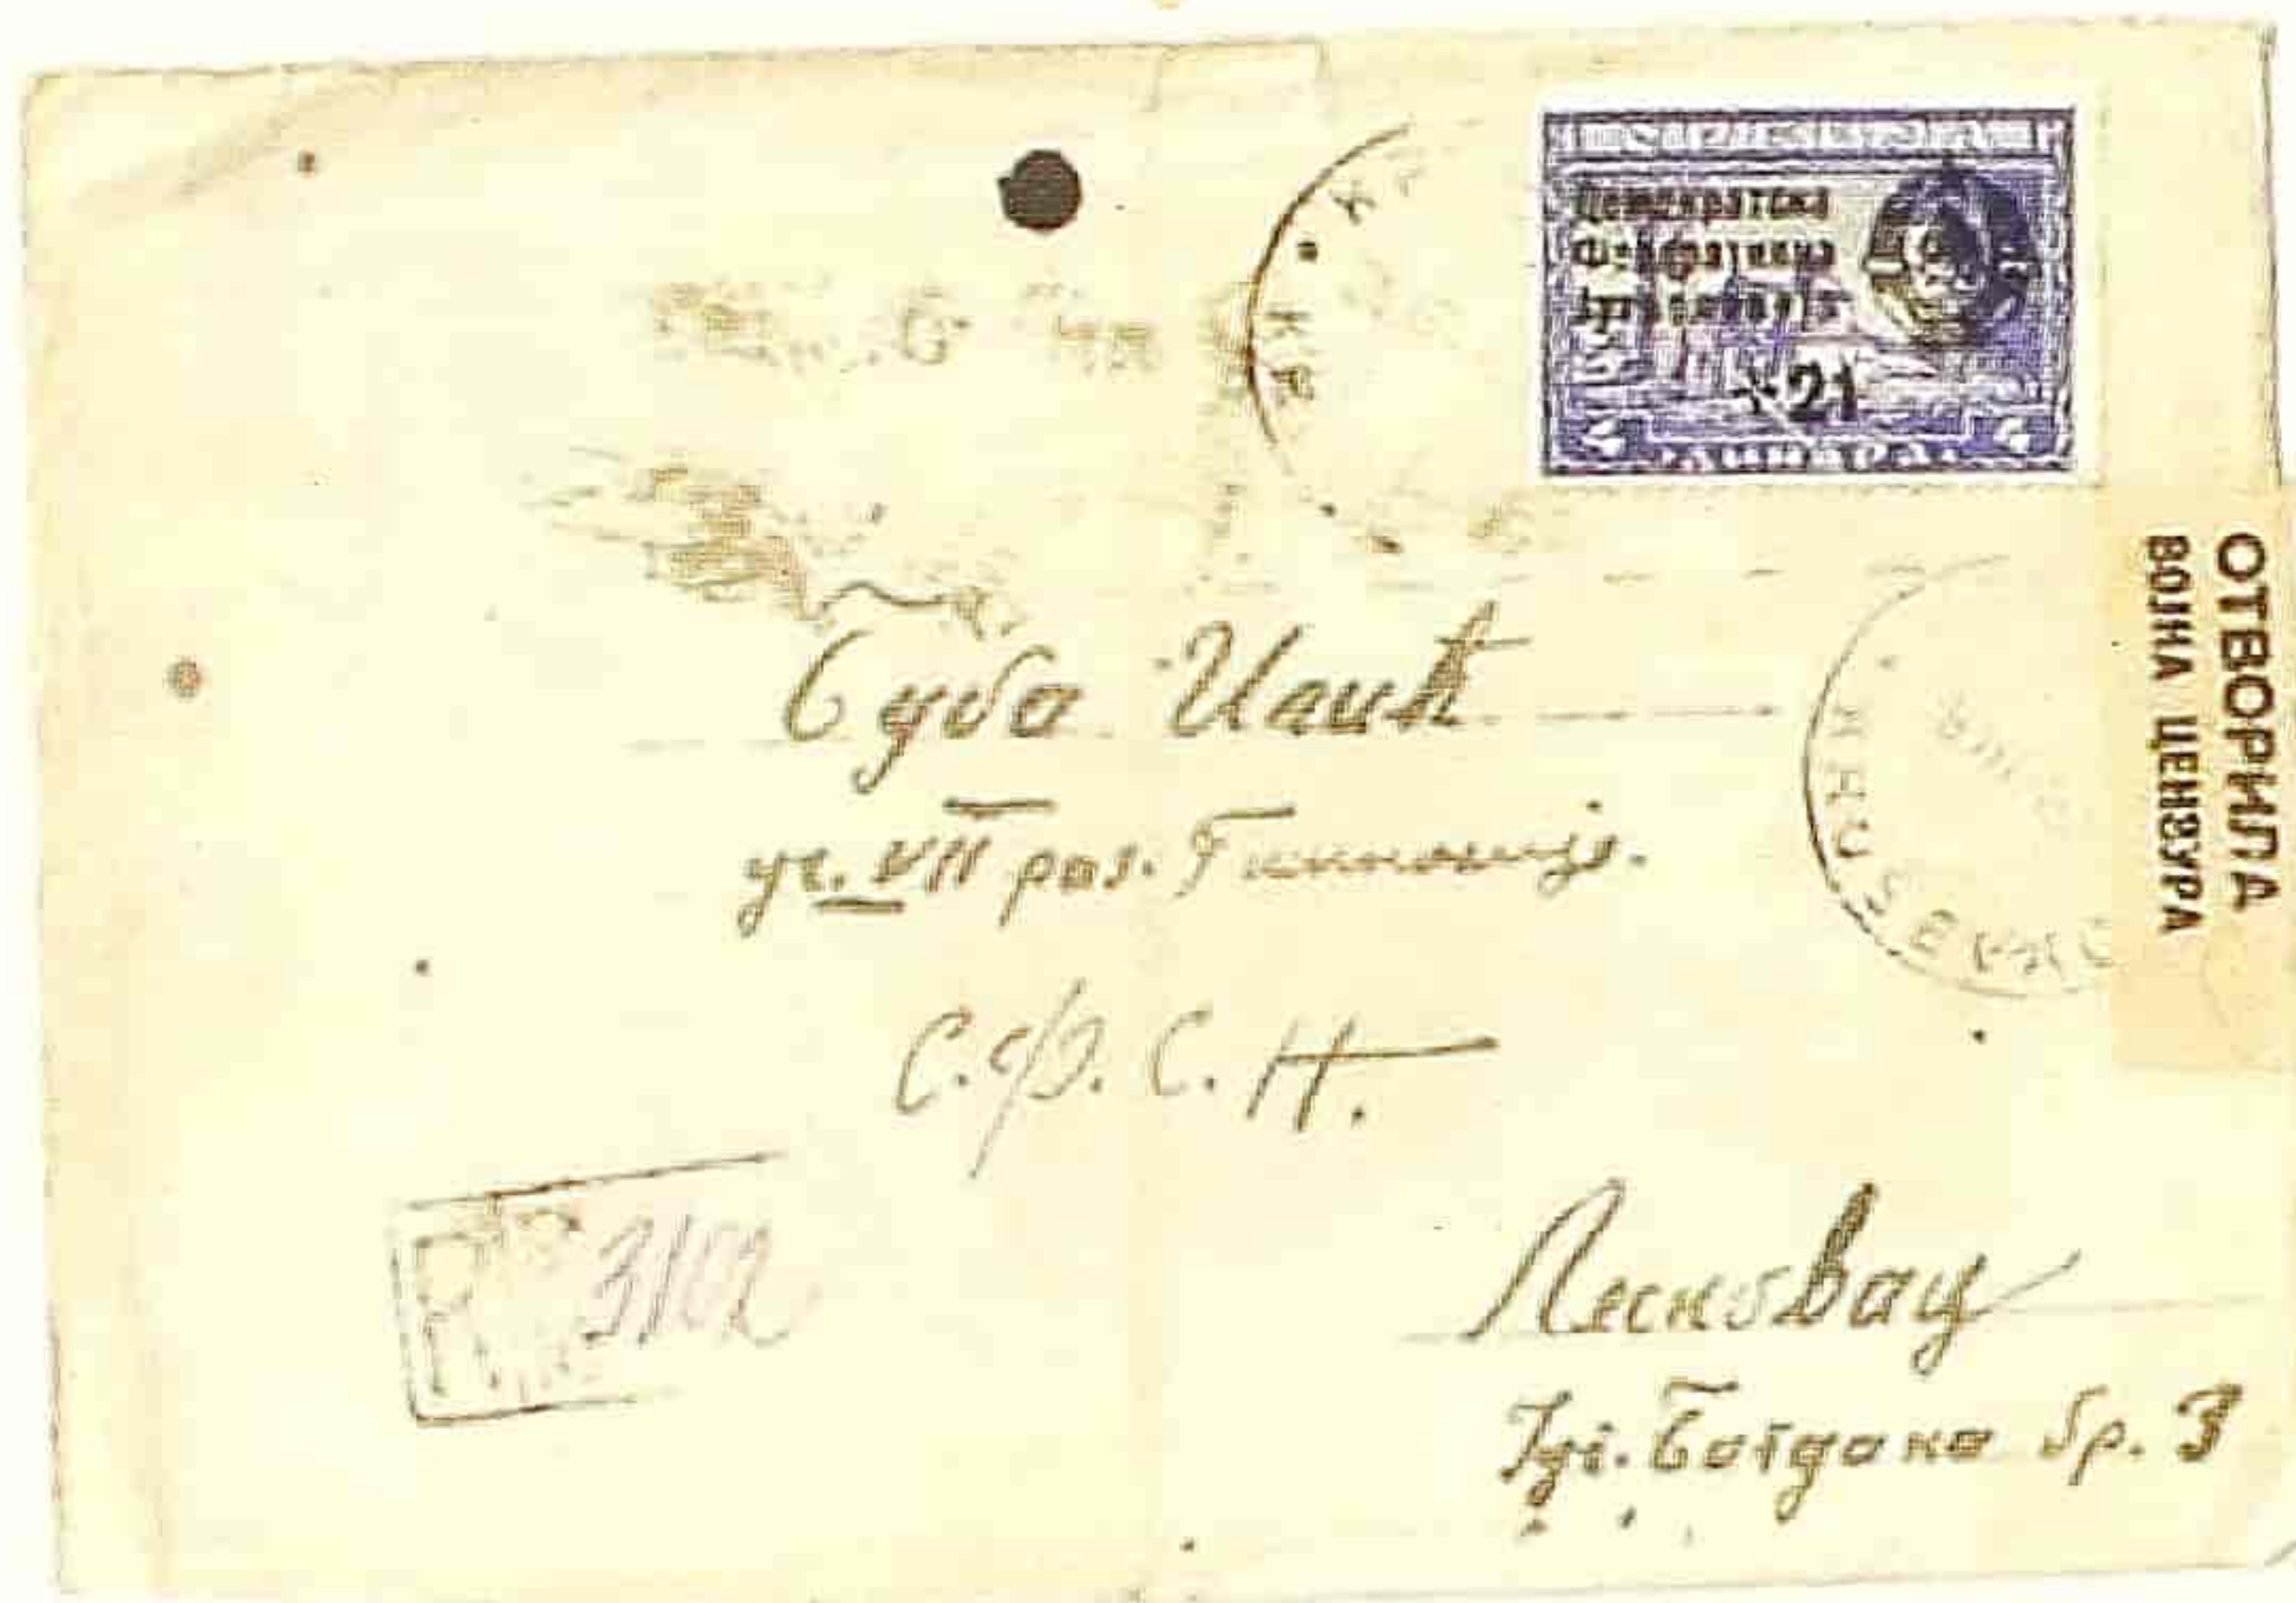 Демократска
Федеративна
Југославија
+21
4 ДИНАРА 4
KRUŠEVAC
ОТВОРИЛА
ВОЈНА ЦЕНЗУРА
Суба Илић
уч. VII раз. Гимназије.
С. Ф. С. Н.
R
3102
Лесковац
Југ. Богдана бр. 3